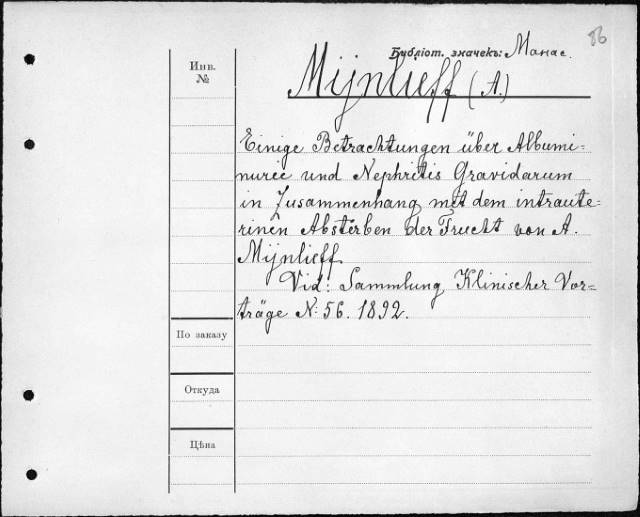 86
Библіот. значекъ: Манас.
Инв.
№
Mijnlieff (A.)
Einige Betrachtungen über Albumi=
nurie und Nephritis Gravidarum
in Zusammenhang mit dem intraute=
rinen Absterben der Frucht von A.
Mijnlieff.
Vid: Sammlung Klinischer Vor=
träge N: 56. 1892.
По заказу
Откуда
Цѣна